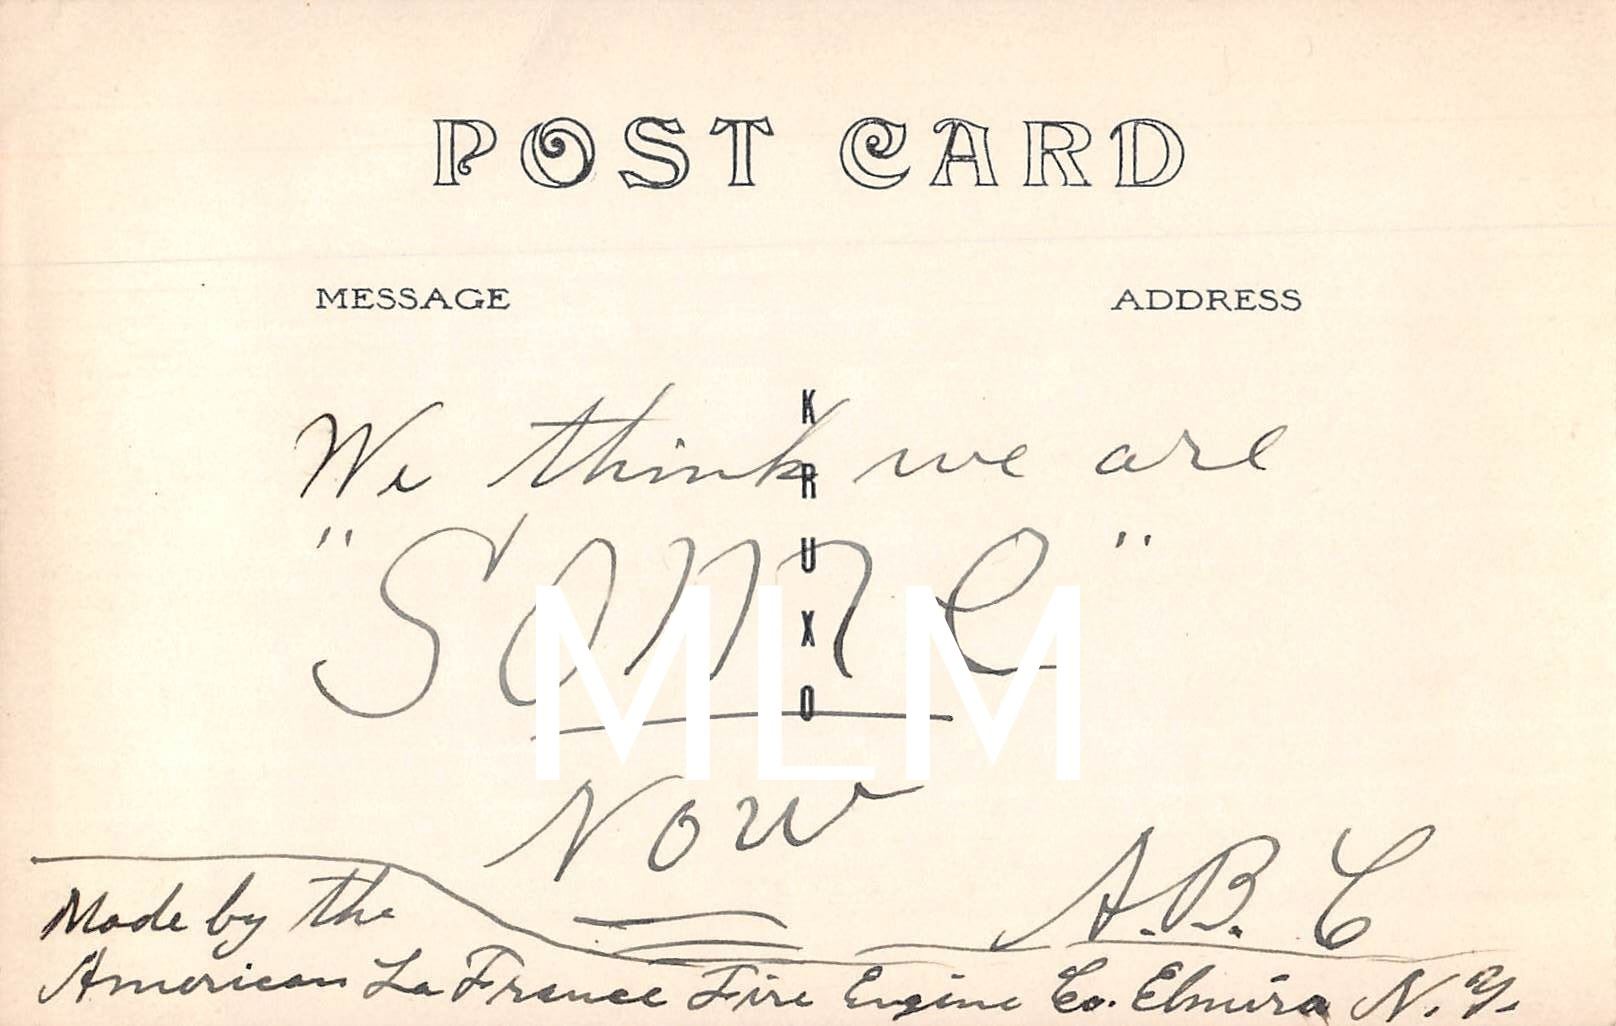 POST CARD
MESSAGE
ADDRESS
KRUXO
We think we are
"SOME"
Now
A.B.C
Made by the
American La France Fire Engine Co. Elmira N.Y.
MLM